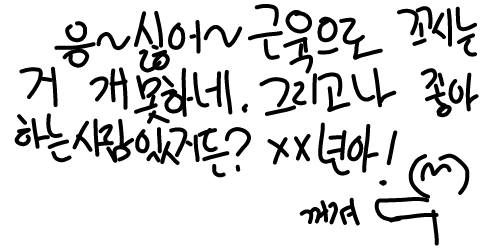 응~싫어~근육으로 꼬시는
거 개못하네. 그리고나 좋아
하는사람있거든? xx년아!
꺼져